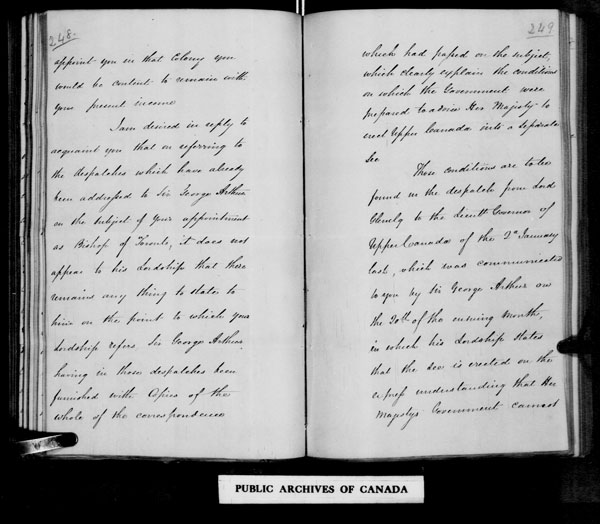 248.
appoint you in that Colony you
would be content to remain with
your present income
I am desired in reply to
acquaint you that on referring to
the despatches which have already
been addressed to Sir George Arthur
on the subject of your appointment
as Bishop of Toronto, it does not
appear to his Lordship that there
remains any thing to state to
him on the point to which your
Lordship refers, Sir George Arthur
having in those despatches been
furnished with Copies of the
whole of the correspondence
249
which had passed on the subject,
which clearly explain the conditions
on which the Government were
prepared to advise Her Majesty to
erect Upper Canada into a Separate
See
These conditions are to be
found in the despatch from Lord
Glenelg to the Lieutt Governor of
Upper Canada of the 2d January
last, which was communicated
to you by Sir George Arthur on
the 20th of the ensuing Month,
in which his Lordship states
that the See is erected on the
express understanding that Her
Majestys Government cannot
PUBLIC ARCHIVES OF CANADA